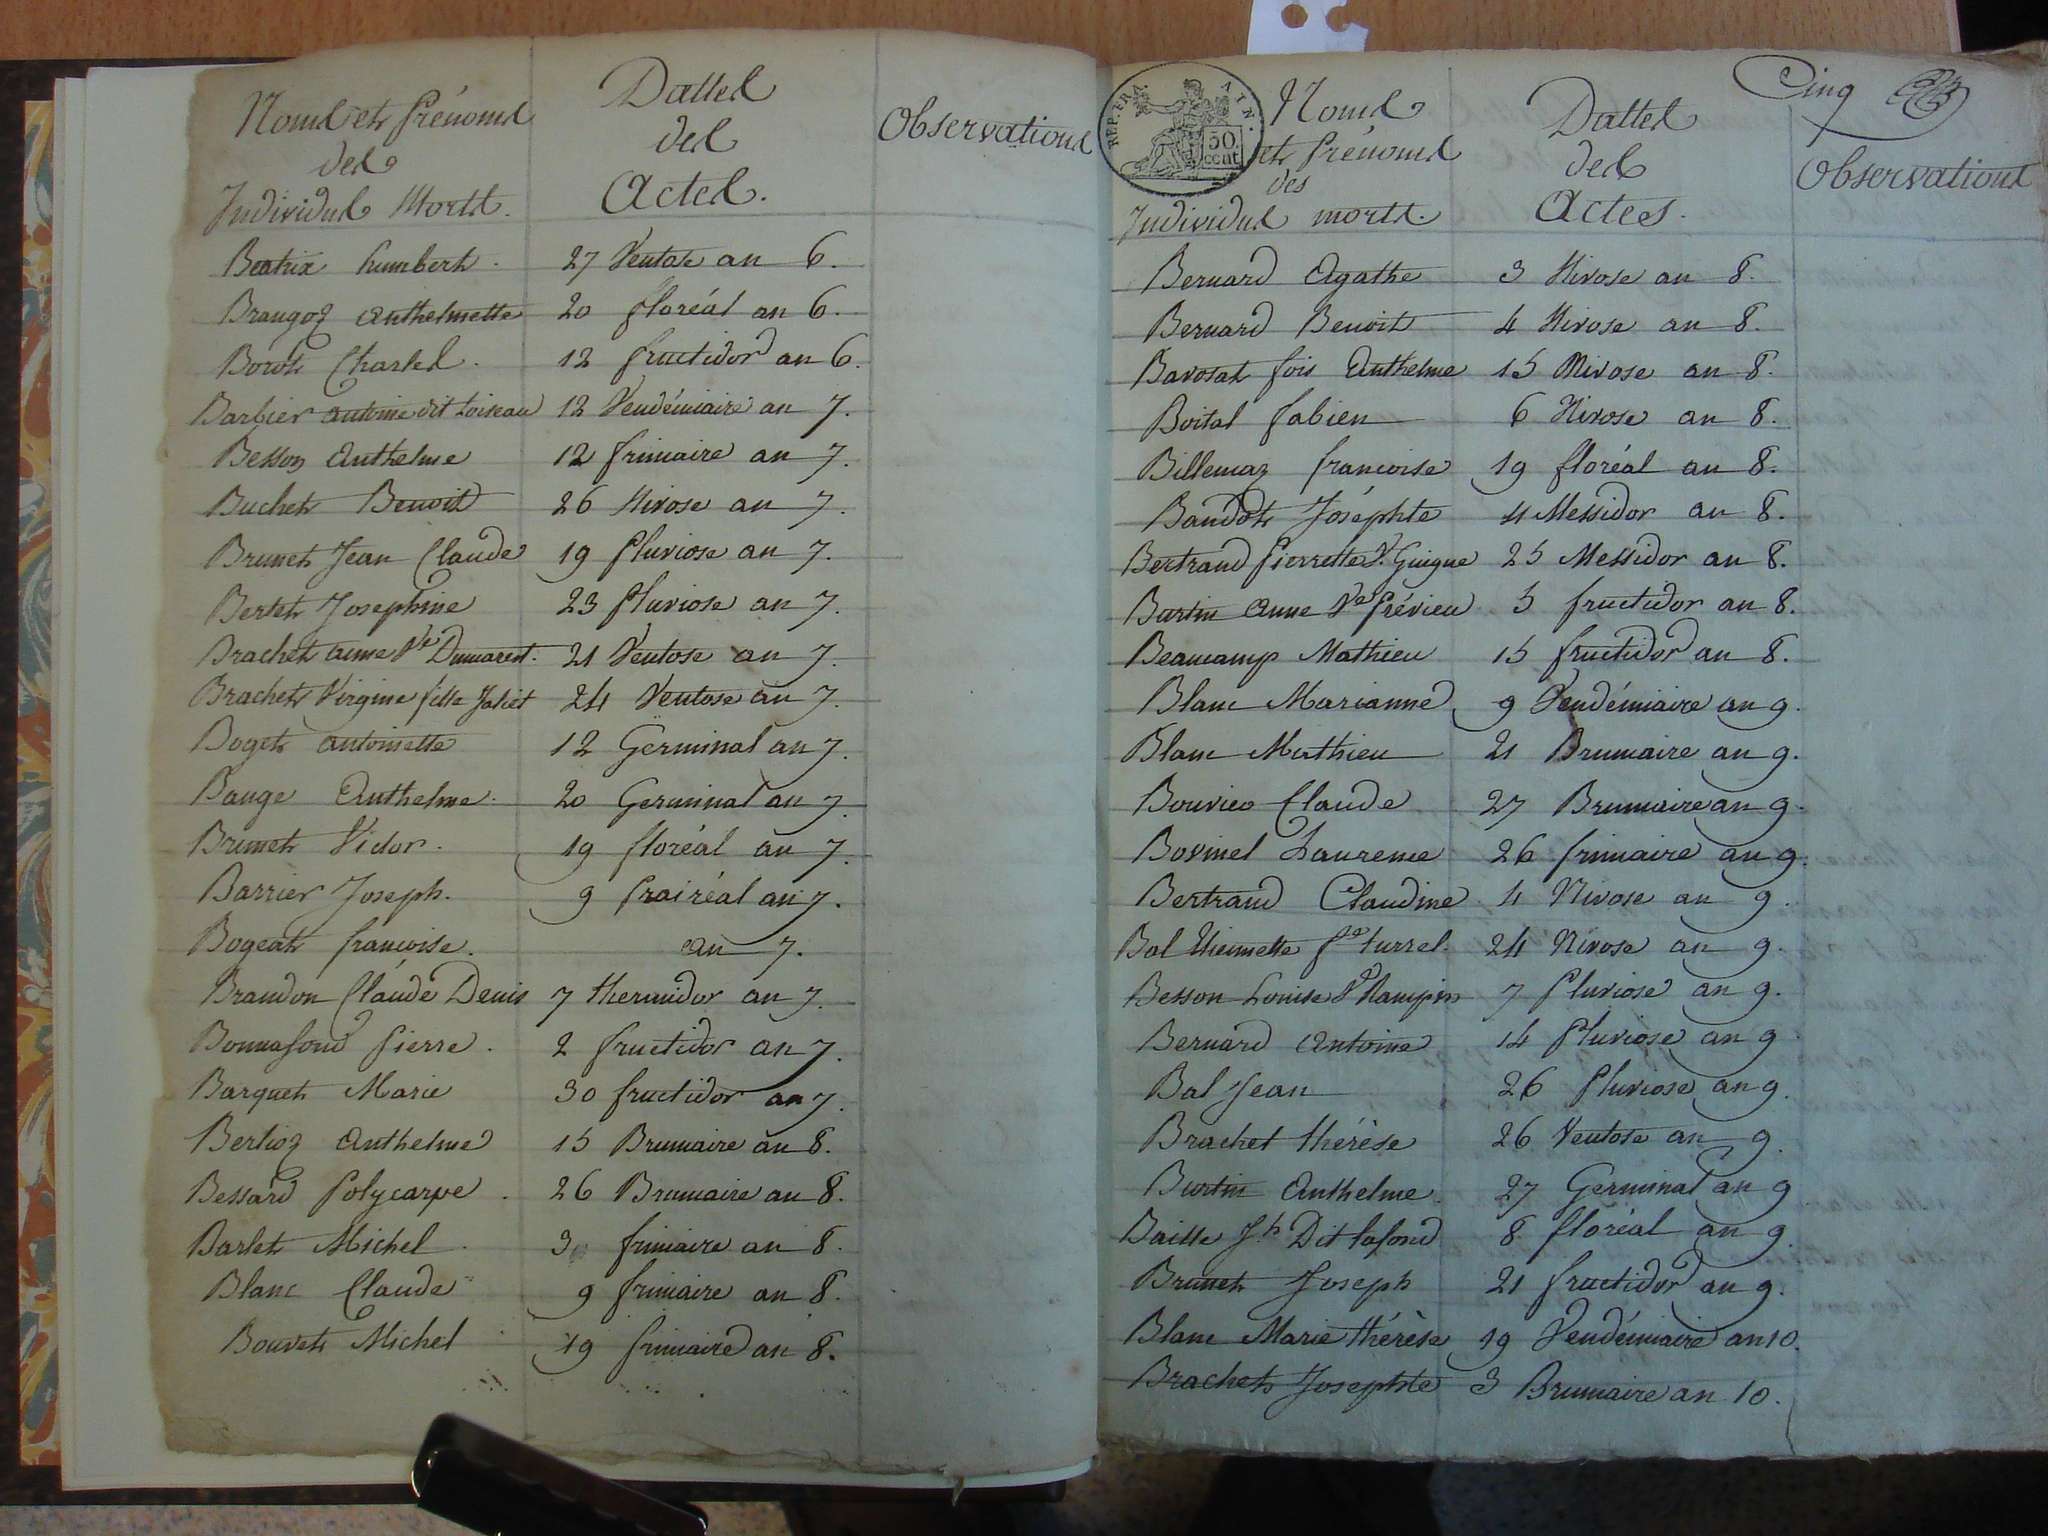 Noms et Prénoms
des
Individus Morts.
Dattes
des
Actes.
Observations
Beatrix humbert. 27 Ventose an 6.
Brangoz anthelmette 20 floréal an 6.
Borot Charles. 12 fructidor an 6.
Barbier antoine dit Loiseau 12 Vendémiaire an 7.
Besson Anthelme 12 frimaire an 7.
Buchet Benoit 26 Nivose an 7.
Brunet Jean Claude 19 Pluviose an 7.
Bertet Josephine 23 Pluviose an 7.
Brachet anne Ve Dumarest. 21 Ventose an 7.
Brachet Virginie fille 24 Ventose an 7.
Boget antoinette 12 Germinal an 7.
Bauge Anthelme. 20 Germinal an 7.
Brunet Victor. 19 floréal an 7.
Barrier Joseph. 9 Prairéal an 7.
Bogeat francoise. an 7.
Brandon Claude Denis 7 thermidor an 7.
Bonnafond Pierre. 2 fructidor an 7.
Barquet Marie 30 fructidor an 7.
Berlioz Anthelme 15 Brumaire an 8.
Bessard Polycarpe. 26 Brumaire an 8.
Barlet Michel. frimaire an 8.
Blanc Claude 9 frimaire an 8.
Bouvet Michel 19 frimaire an 8.
Cinq
REP. FRA.
AIN.
50
cent
Noms
et Prénoms
des
Individus morts.
Dattes
des
Actes.
Observations
Bernard Agathe 3 Nivose an 8.
Bernard Benoit 4 Nivose an 8.
Bavosat fois Anthelme 15 Nivose an 8.
Boital fabien 6 Nivose an 8.
Billemaz francoise 19 floréal an 8.
Baudot Joséphte 4 Messidor an 8.
Bertrand Pierrette Ve Guigue 25 Messidor an 8.
Burtin Anne Ve Prévieu 5 fructidor an 8.
Beaucamp Mathieu 15 fructidor an 8.
Blanc Marianne 9 Vendémiaire an 9.
Blanc Mathieu 21 Brumaire an 9.
Bouvier Claude 27 Brumaire an 9.
Bovinel Laurence 26 frimaire an 9.
Bertrand Claudine 4 Nivose an 9.
Bal thiennette fe turrel. 24 Nivose an 9.
Besson Louise Ve Rampin 7 Pluviose an 9.
Bernard Antoine 14 Pluviose an 9
Bal Jean 26 Pluviose an 9.
Brachet thérèse 26 Ventose an 9.
Burtin Anthelme. 27 Germinal an 9
Baille Jh Dit lafond 8 floréal an 9.
Brunet Joseph 21 fructidor an 9.
Blanc Marie thérèse 19 Vendémiaire an 10.
Brachet Josephte 3 Brumaire an 10.